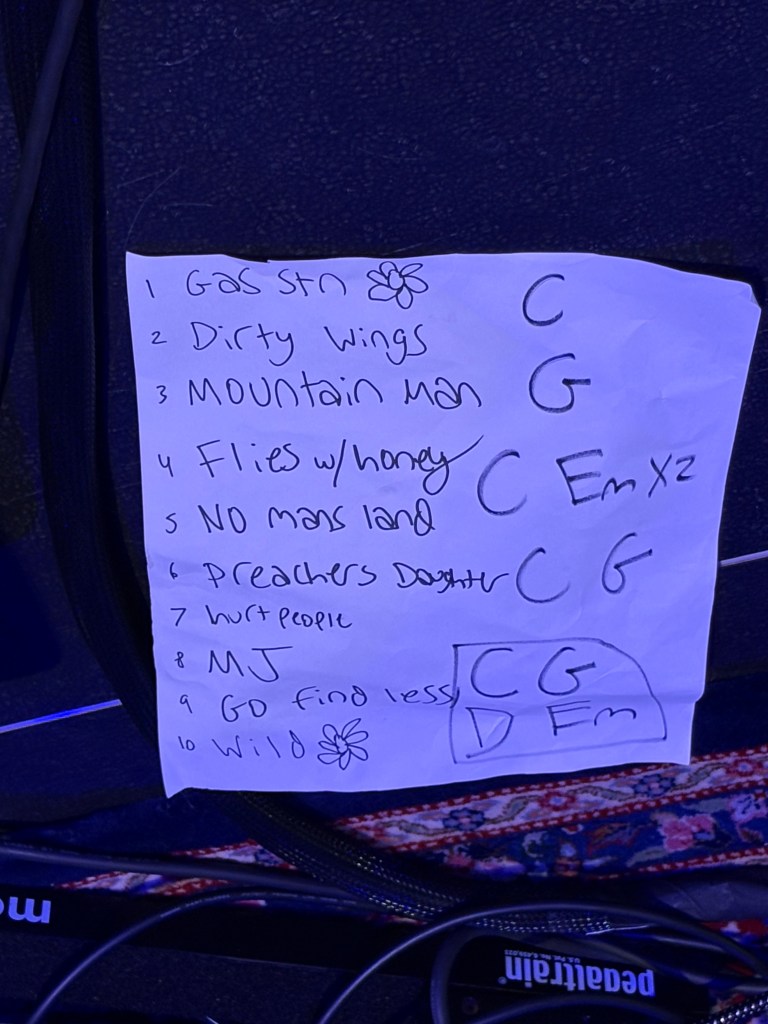 1 Gas stn C
2 Dirty wings
3 Mountain Man G
4 Flies w/honey C Em X2
5 NO mans land
6 Preachers Daughter C G
7 hurt people
8 MJ C G
9 GO find less D Em
10 Wild
pedaltrain®